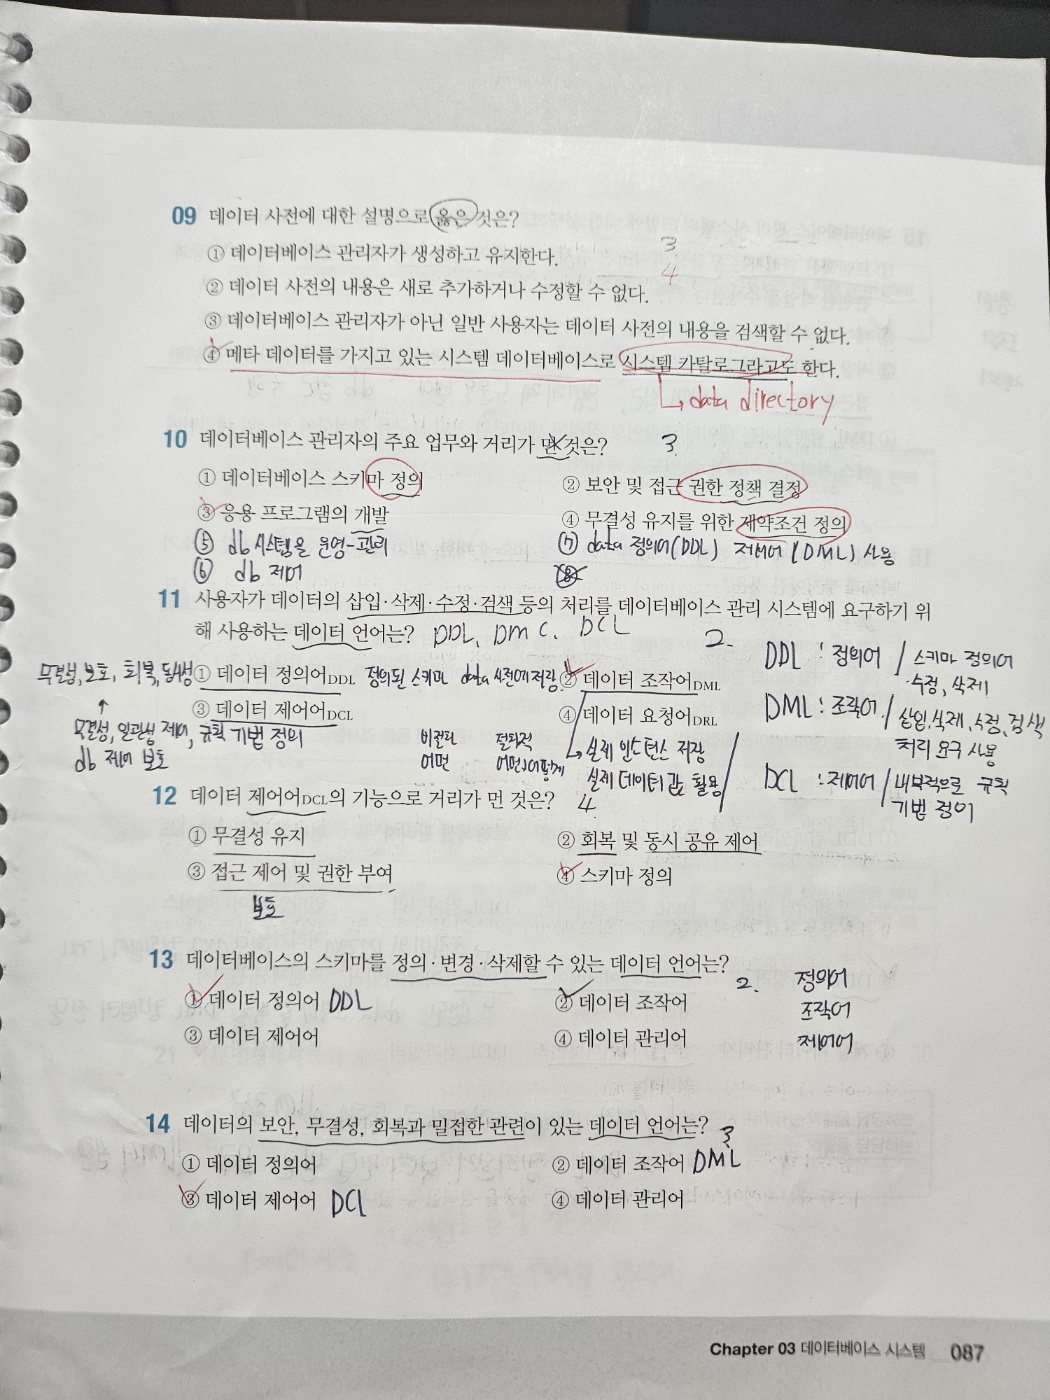 09 데이터 사전에 대한 설명으로 옳은 것은?
① 데이터베이스 관리자가 생성하고 유지한다.
3
② 데이터 사전의 내용은 새로 추가하거나 수정할 수 없다.
4
③ 데이터베이스 관리자가 아닌 일반 사용자는 데이터 사전의 내용을 검색할 수 없다.
④ 메타 데이터를 가지고 있는 시스템 데이터베이스로 시스템 카탈로그라고도 한다.
data directory
10 데이터베이스 관리자의 주요 업무와 거리가 먼 것은? 3
① 데이터베이스 스키마 정의 ② 보안 및 접근 권한 정책 결정
③ 응용 프로그램의 개발 ④ 무결성 유지를 위한 제약조건 정의
⑤ db 시스템을 운영-관리 ⑦ data 정의어(DDL) 제어어(DML) 사용
⑥ db 제어
11 사용자가 데이터의 삽입·삭제·수정·검색 등의 처리를 데이터베이스 관리 시스템에 요구하기 위
해 사용하는 데이터 언어는? DDL, DMC, DCL 2.
무결성, 보호, 회복, 동시성 ① 데이터 정의어DDL 정의된 스키마 data 사전에 저장 ② 데이터 조작어DML
DDL : 정의어 / 스키마 정의어
수정, 삭제
③ 데이터 제어어DCL ④ 데이터 요청어DRL
DML : 조작어 / 삽입, 삭제, 수정, 검색
처리 요구 사용
무결성, 일관성 제어, 규칙 기법 정의
db 제어 보호
비절차 절차적 실제 인스턴스 저장
어떤 어떤, 어떻게 실제 데이터 값 활용
DCL : 제어어 / 내부적으로 규칙
기법 정의
12 데이터 제어어DCL의 기능으로 거리가 먼 것은? 4
① 무결성 유지 ② 회복 및 동시 공유 제어
③ 접근 제어 및 권한 부여 ④ 스키마 정의
보호
13 데이터베이스의 스키마를 정의·변경·삭제할 수 있는 데이터 언어는? 2.
① 데이터 정의어 DDL ② 데이터 조작어
③ 데이터 제어어 ④ 데이터 관리어
정의어
조작어
제어어
14 데이터의 보안, 무결성, 회복과 밀접한 관련이 있는 데이터 언어는? 3
① 데이터 정의어 ② 데이터 조작어 DML
③ 데이터 제어어 DCL ④ 데이터 관리어
Chapter 03 데이터베이스 시스템 087